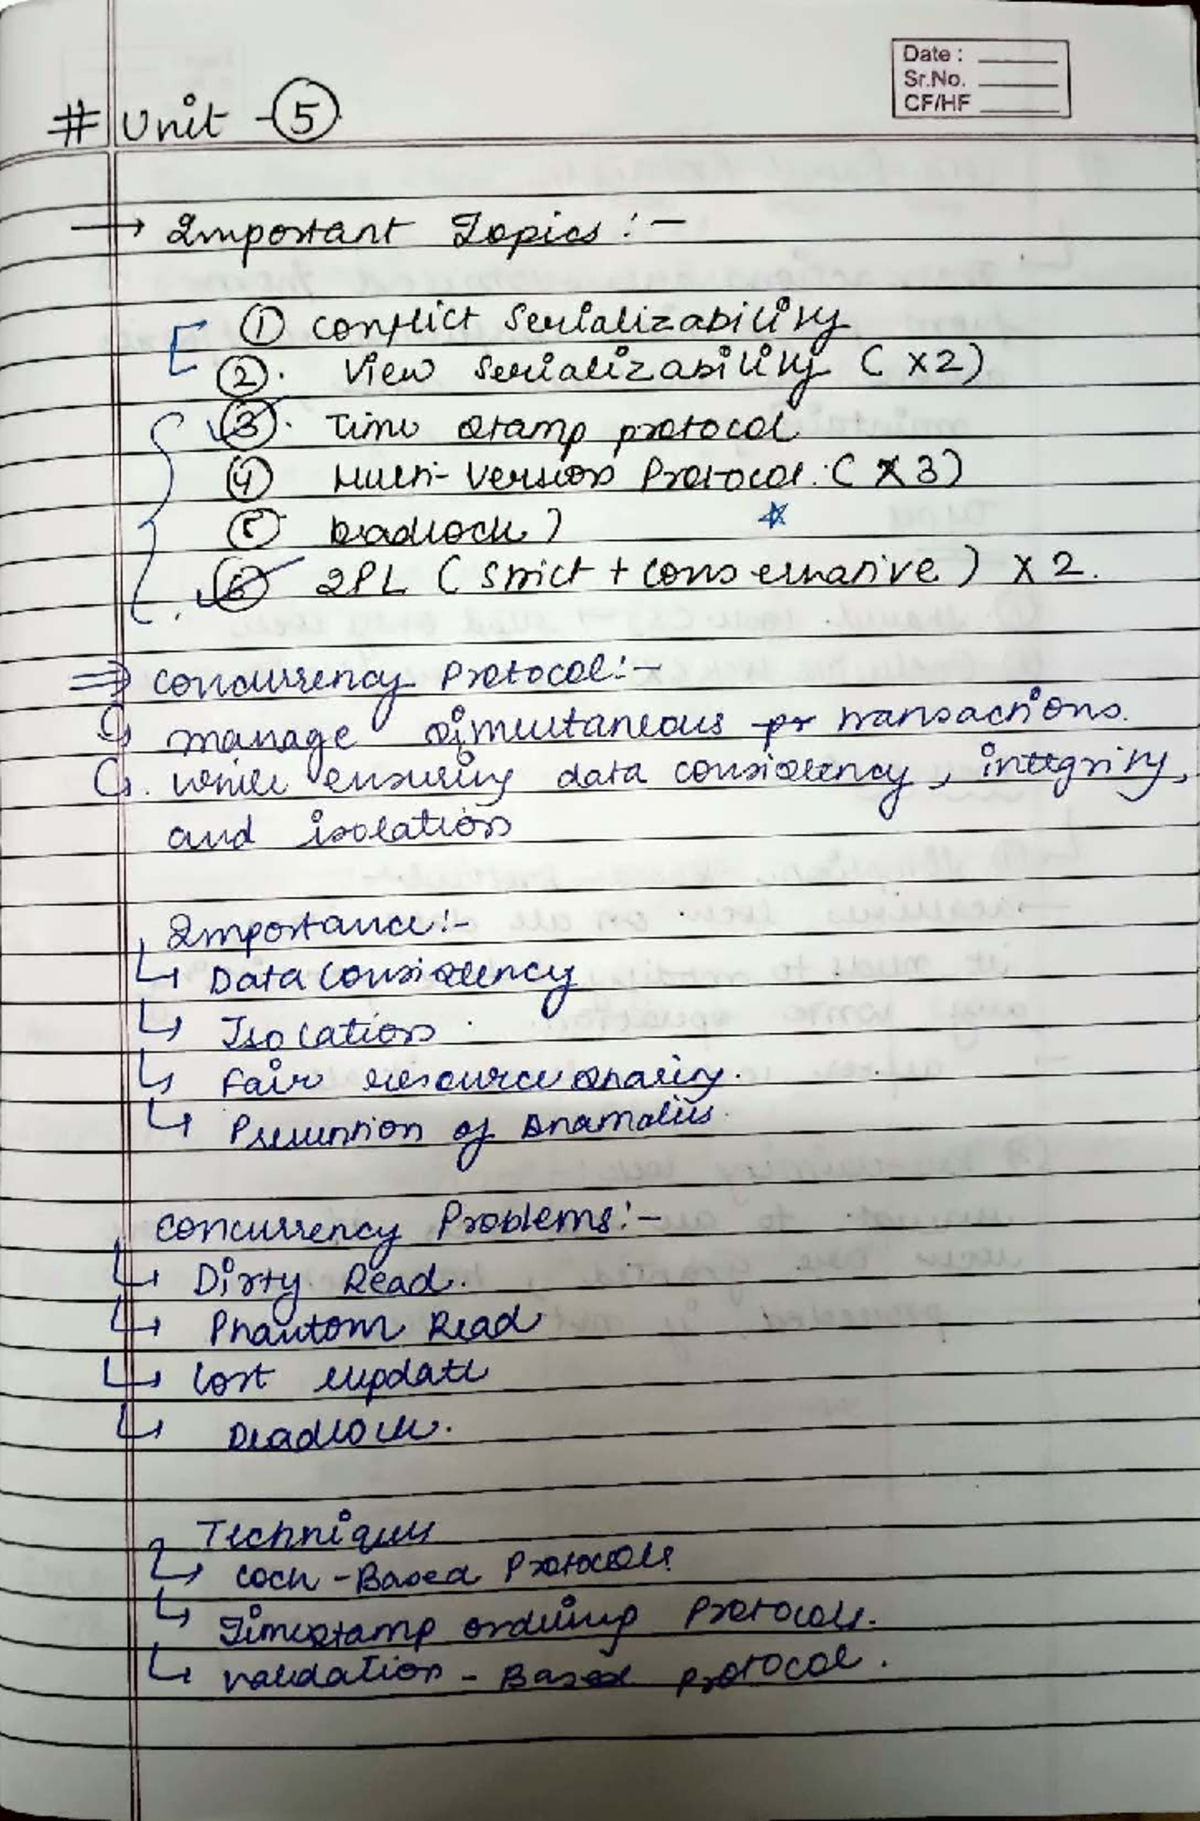 Date :
Sr.No.
CF/HF
# Unit - 5
→ Important Topics :-
① Conflict Serializability
②. View Serializability ( ×2)
③. Time stamp protocol
④ Multi-Version Protocol. ( ×3)
⑤ Deadlock )
⑥ 2PL ( Strict + Conservative ) × 2.
⇒ Concurrency Protocol:-
↳ manage simultaneous pr transactions.
↳. while ensuring data consistency, integrity,
and isolation
Importance:-
↳ Data Consistency
↳ Isolation
↳ Fair resource sharing.
↳ Prevention of Anamalies.
Concurrency Problems:-
↳ Dirty Read.
↳ Phantom Read
↳ Lost update
↳ Deadlock.
Techniques
↳ Lock - Based Protocols.
↳ Timestamp ordering Protocols.
↳ Validation - Based protocol.